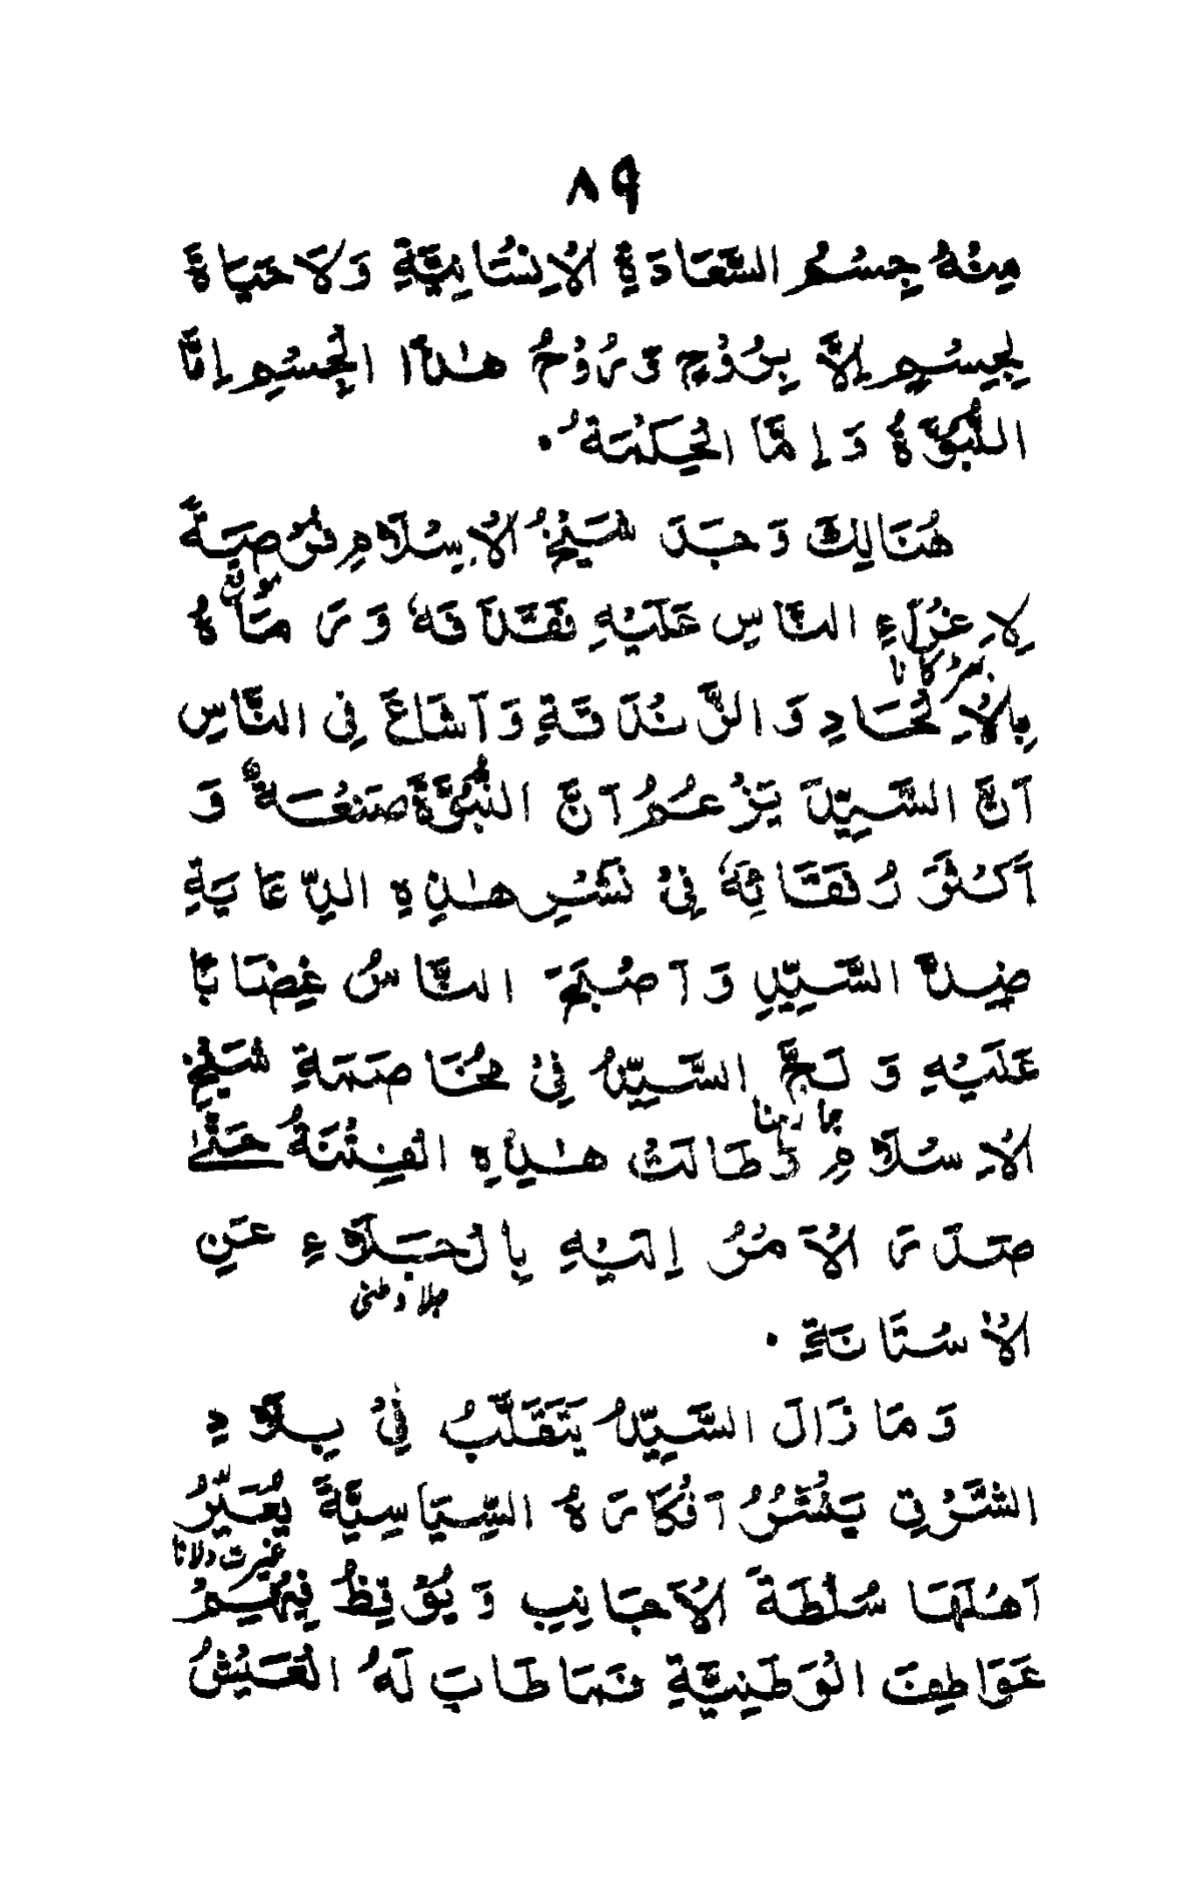 ٨٩
مِنْهُ جِسْمُ السَّعَادَةِ الْاِنْسَانِيَّةِ وَلَا حَيَاةَ
لِجِسْمٍ اِلَّا بِرُوْحٍ وَّرُوْحُ هٰذَا الْجِسْمِ اِمَّا
النُّبُوَّةُ وَ اِمَّا الْحِكْمَةُ ۔
هُنَالِكَ وَجَدَ شَيْخُ الْاِسْلَامِ فُرْصَةً
لِاِغْرَاءِ النَّاسِ عَلَيْهِ فَقَذَفَهٗ وَرَمَاهُ
بھڑکانا
بِالْاِلْحَادِ وَ الزَّنْدَقَةِ وَ اَشَاعَ فِی النَّاسِ
اَنَّ السَّيِّدَ يَزْعُمُ اَنَّ النُّبُوَّةَ صَنْعَةٌ وَ
اَكْثَرَ رُفَقَائِهٗ فِیْ نَشْرِ هٰذِهِ الدِّعَايَةِ
ضِدَّ السَّيِّدِ وَ اَصْبَحَ النَّاسُ غِضَابًا
عَلَيْهِ وَ لَجَّ السَّيِّدُ فِیْ مُخَاصَمَةِ شَيْخِ
جما رہنا
الْاِسْلَامِ وَطَالَتْ هٰذِهِ الْفِتْنَةُ حَتّٰى
صَدَرَ الْاَمْرُ اِلَيْهِ بِالْجَلَاءِ عَنِ
جلا وطنی
الْاَسْتَانَةِ ۔
وَمَا زَالَ السَّيِّدُ يَتَقَلَّبُ فِیْ بِلَادِ
الشَّرْقِ يَنْشُرُ اَفْكَارَهُ السِّيَاسِيَّةَ يُعَيِّرُ
غیرت دلانا
اَهْلَهَا سُلْطَةَ الْاَجَانِبِ وَيُوْقِظُ فِيْهِمْ
عَوَاطِفَ الْوَطَنِيَّةِ فَمَا طَابَ لَهُ الْعَيْشُ